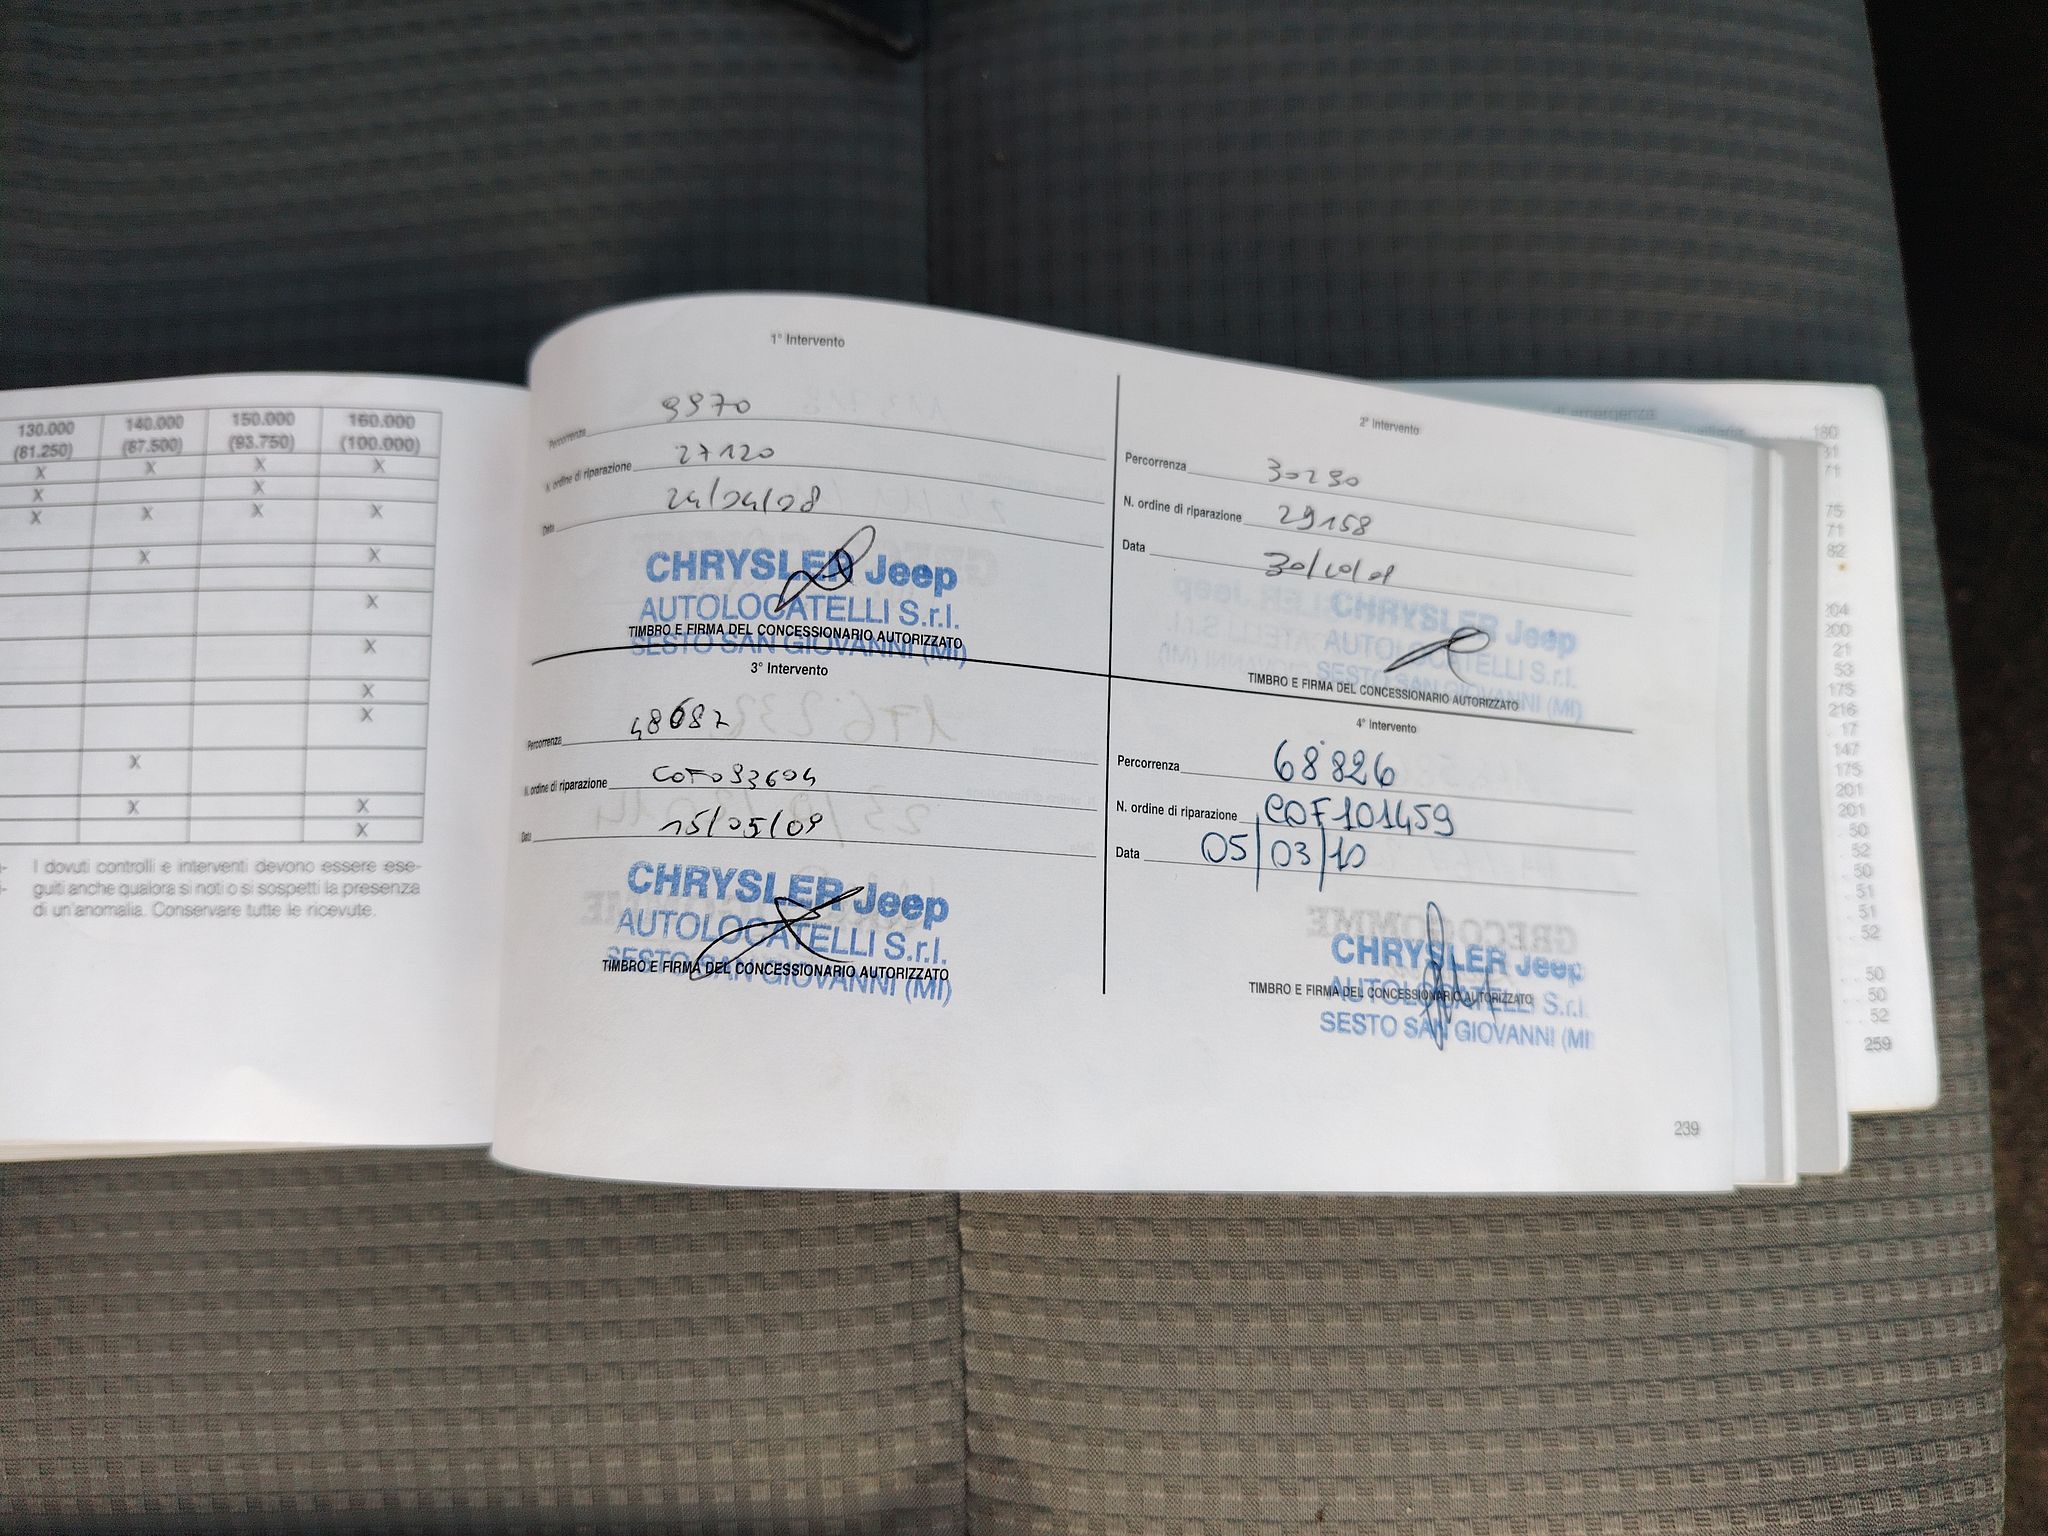 130.000 140.000 150.000 160.000
(81.250) (87.500) (93.750) (100.000)
X X X X
X X
X X X X
X X
X
X
X
X
X
X X
X
I dovuti controlli e interventi devono essere ese-
guiti anche qualora si noti o si sospetti la presenza
di un'anomalia. Conservare tutte le ricevute.
1° Intervento
Percorrenza 9970
N. ordine di riparazione 27120
Data 24/04/08
CHRYSLER Jeep
AUTOLOCATELLI S.r.l.
TIMBRO E FIRMA DEL CONCESSIONARIO AUTORIZZATO
SESTO SAN GIOVANNI (MI)
2° Intervento
Percorrenza 30290
N. ordine di riparazione 29158
Data 30/10/08
CHRYSLER Jeep
AUTOLOCATELLI S.r.l.
SESTO SAN GIOVANNI (MI)
TIMBRO E FIRMA DEL CONCESSIONARIO AUTORIZZATO
3° Intervento
Percorrenza 48687
N. ordine di riparazione COF093604
Data 15/05/09
CHRYSLER Jeep
AUTOLOCATELLI S.r.l.
SESTO SAN GIOVANNI (MI)
TIMBRO E FIRMA DEL CONCESSIONARIO AUTORIZZATO
4° Intervento
Percorrenza 68826
N. ordine di riparazione COF101459
Data 05/03/10
CHRYSLER Jeep
TIMBRO E FIRMA DEL CONCESSIONARIO AUTORIZZATO
AUTOLOCATELLI S.r.l.
SESTO SAN GIOVANNI (MI
239
di emergenza
180
31
71
75
71
82
204
200
21
53
175
216
17
147
175
201
201
50
52
50
51
51
52
50
50
52
259